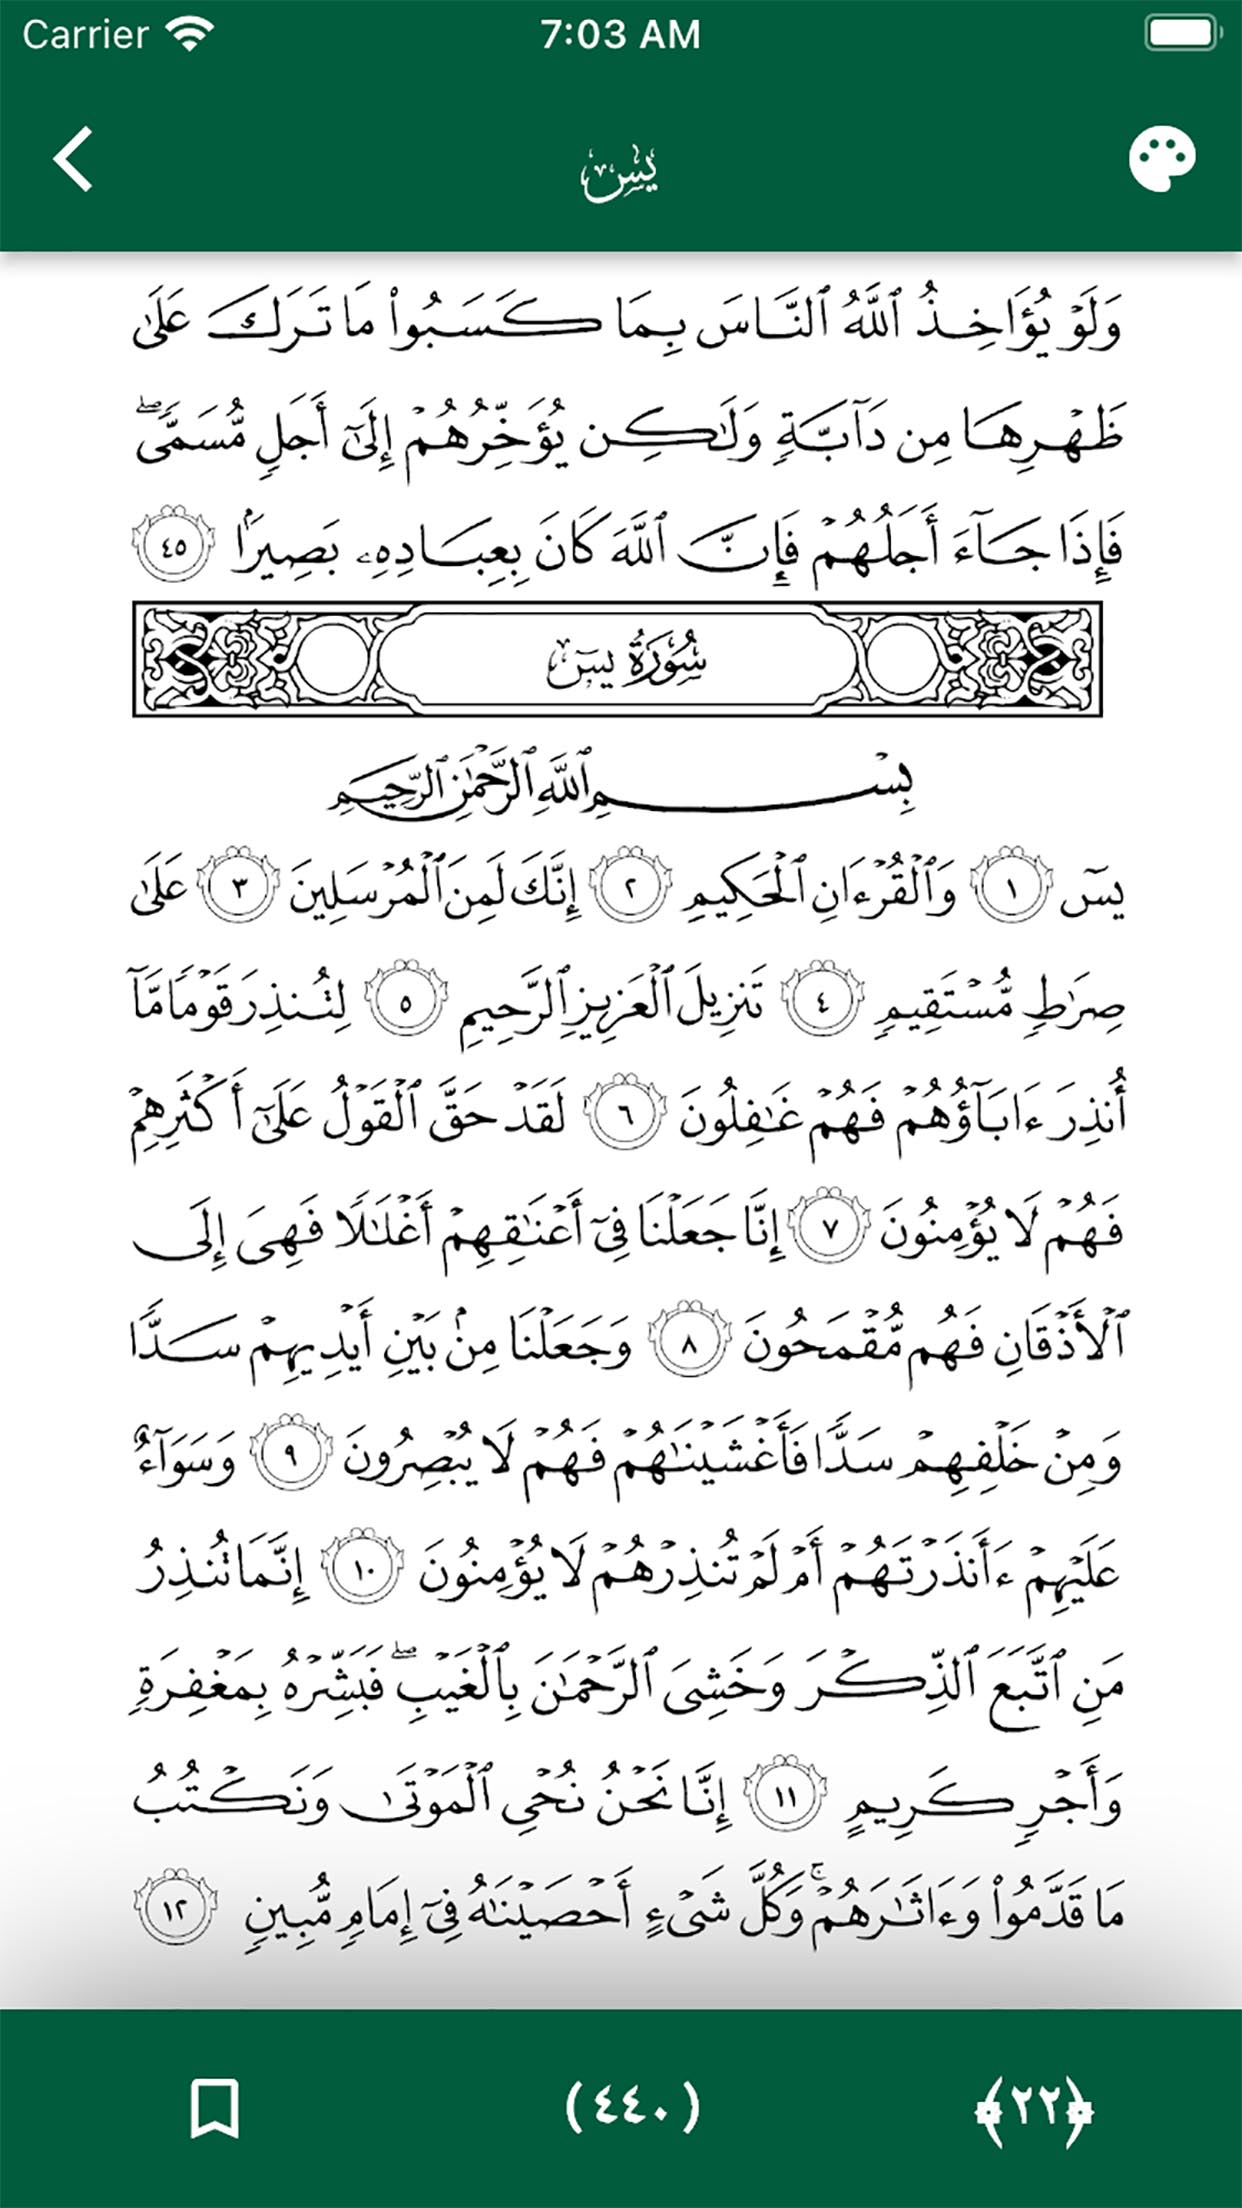 Carrier 7:03 AM
يسٓ
وَلَوْ يُؤَاخِذُ ٱللَّهُ ٱلنَّاسَ بِمَا كَسَبُوا۟ مَا تَرَكَ عَلَىٰ
ظَهْرِهَا مِن دَآبَّةٍ وَلَـٰكِن يُؤَخِّرُهُمْ إِلَىٰٓ أَجَلٍ مُّسَمًّى ۖ
فَإِذَا جَآءَ أَجَلُهُمْ فَإِنَّ ٱللَّهَ كَانَ بِعِبَادِهِۦ بَصِيرًۢا ٤٥
سُورَةُ يسٓ
بِسْمِ ٱللَّهِ ٱلرَّحْمَـٰنِ ٱلرَّحِيمِ
يسٓ ١ وَٱلْقُرْءَانِ ٱلْحَكِيمِ ٢ إِنَّكَ لَمِنَ ٱلْمُرْسَلِينَ ٣ عَلَىٰ
صِرَٰطٍ مُّسْتَقِيمٍ ٤ تَنزِيلَ ٱلْعَزِيزِ ٱلرَّحِيمِ ٥ لِتُنذِرَ قَوْمًا مَّآ
أُنذِرَ ءَابَآؤُهُمْ فَهُمْ غَـٰفِلُونَ ٦ لَقَدْ حَقَّ ٱلْقَوْلُ عَلَىٰٓ أَكْثَرِهِمْ
فَهُمْ لَا يُؤْمِنُونَ ٧ إِنَّا جَعَلْنَا فِىٓ أَعْنَـٰقِهِمْ أَغْلَـٰلًا فَهِىَ إِلَى
ٱلْأَذْقَانِ فَهُم مُّقْمَحُونَ ٨ وَجَعَلْنَا مِنۢ بَيْنِ أَيْدِيهِمْ سَدًّا
وَمِنْ خَلْفِهِمْ سَدًّا فَأَغْشَيْنَـٰهُمْ فَهُمْ لَا يُبْصِرُونَ ٩ وَسَوَآءٌ
عَلَيْهِمْ ءَأَنذَرْتَهُمْ أَمْ لَمْ تُنذِرْهُمْ لَا يُؤْمِنُونَ ١٠ إِنَّمَا تُنذِرُ
مَنِ ٱتَّبَعَ ٱلذِّكْرَ وَخَشِىَ ٱلرَّحْمَـٰنَ بِٱلْغَيْبِ ۖ فَبَشِّرْهُ بِمَغْفِرَةٍ
وَأَجْرٍ كَرِيمٍ ١١ إِنَّا نَحْنُ نُحْىِ ٱلْمَوْتَىٰ وَنَكْتُبُ
مَا قَدَّمُوا۟ وَءَاثَـٰرَهُمْ ۚ وَكُلَّ شَىْءٍ أَحْصَيْنَـٰهُ فِىٓ إِمَامٍ مُّبِينٍ ١٢
﴿٢٢﴾ (٤٤٠)